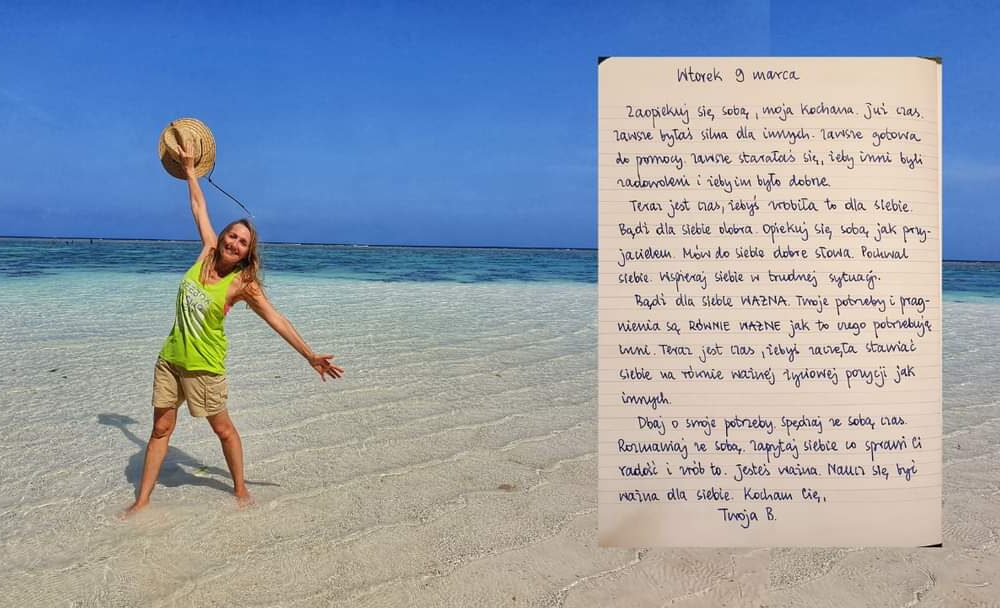 Wtorek 9 marca
Zaopiekuj się sobą, moja Kochana. Już czas.
Zawsze byłaś silna dla innych. Zawsze gotowa
do pomocy. Zawsze starałaś się, żeby inni byli
zadowoleni i żeby im było dobrze.
Teraz jest czas, żebyś zrobiła to dla siebie.
Bądź dla siebie dobra. Opiekuj się sobą, jak przy-
jacielem. Mów do siebie dobre słowa. Pochwal
siebie. Wspieraj siebie w trudnej sytuacji.
Bądź dla siebie WAŻNA. Twoje potrzeby i prag-
nienia są RÓWNIE WAŻNE jak to czego potrzebują
inni. Teraz jest czas, żebyś zaczęła stawiać
siebie na równie ważnej życiowej pozycji jak
innych.
Dbaj o swoje potrzeby. Spędzaj ze sobą czas.
Rozmawiaj ze sobą. Zapytaj siebie co sprawi Ci
radość i zrób to. Jesteś ważna. Naucz się być
ważna dla siebie. Kocham Cię,
Twoja B.